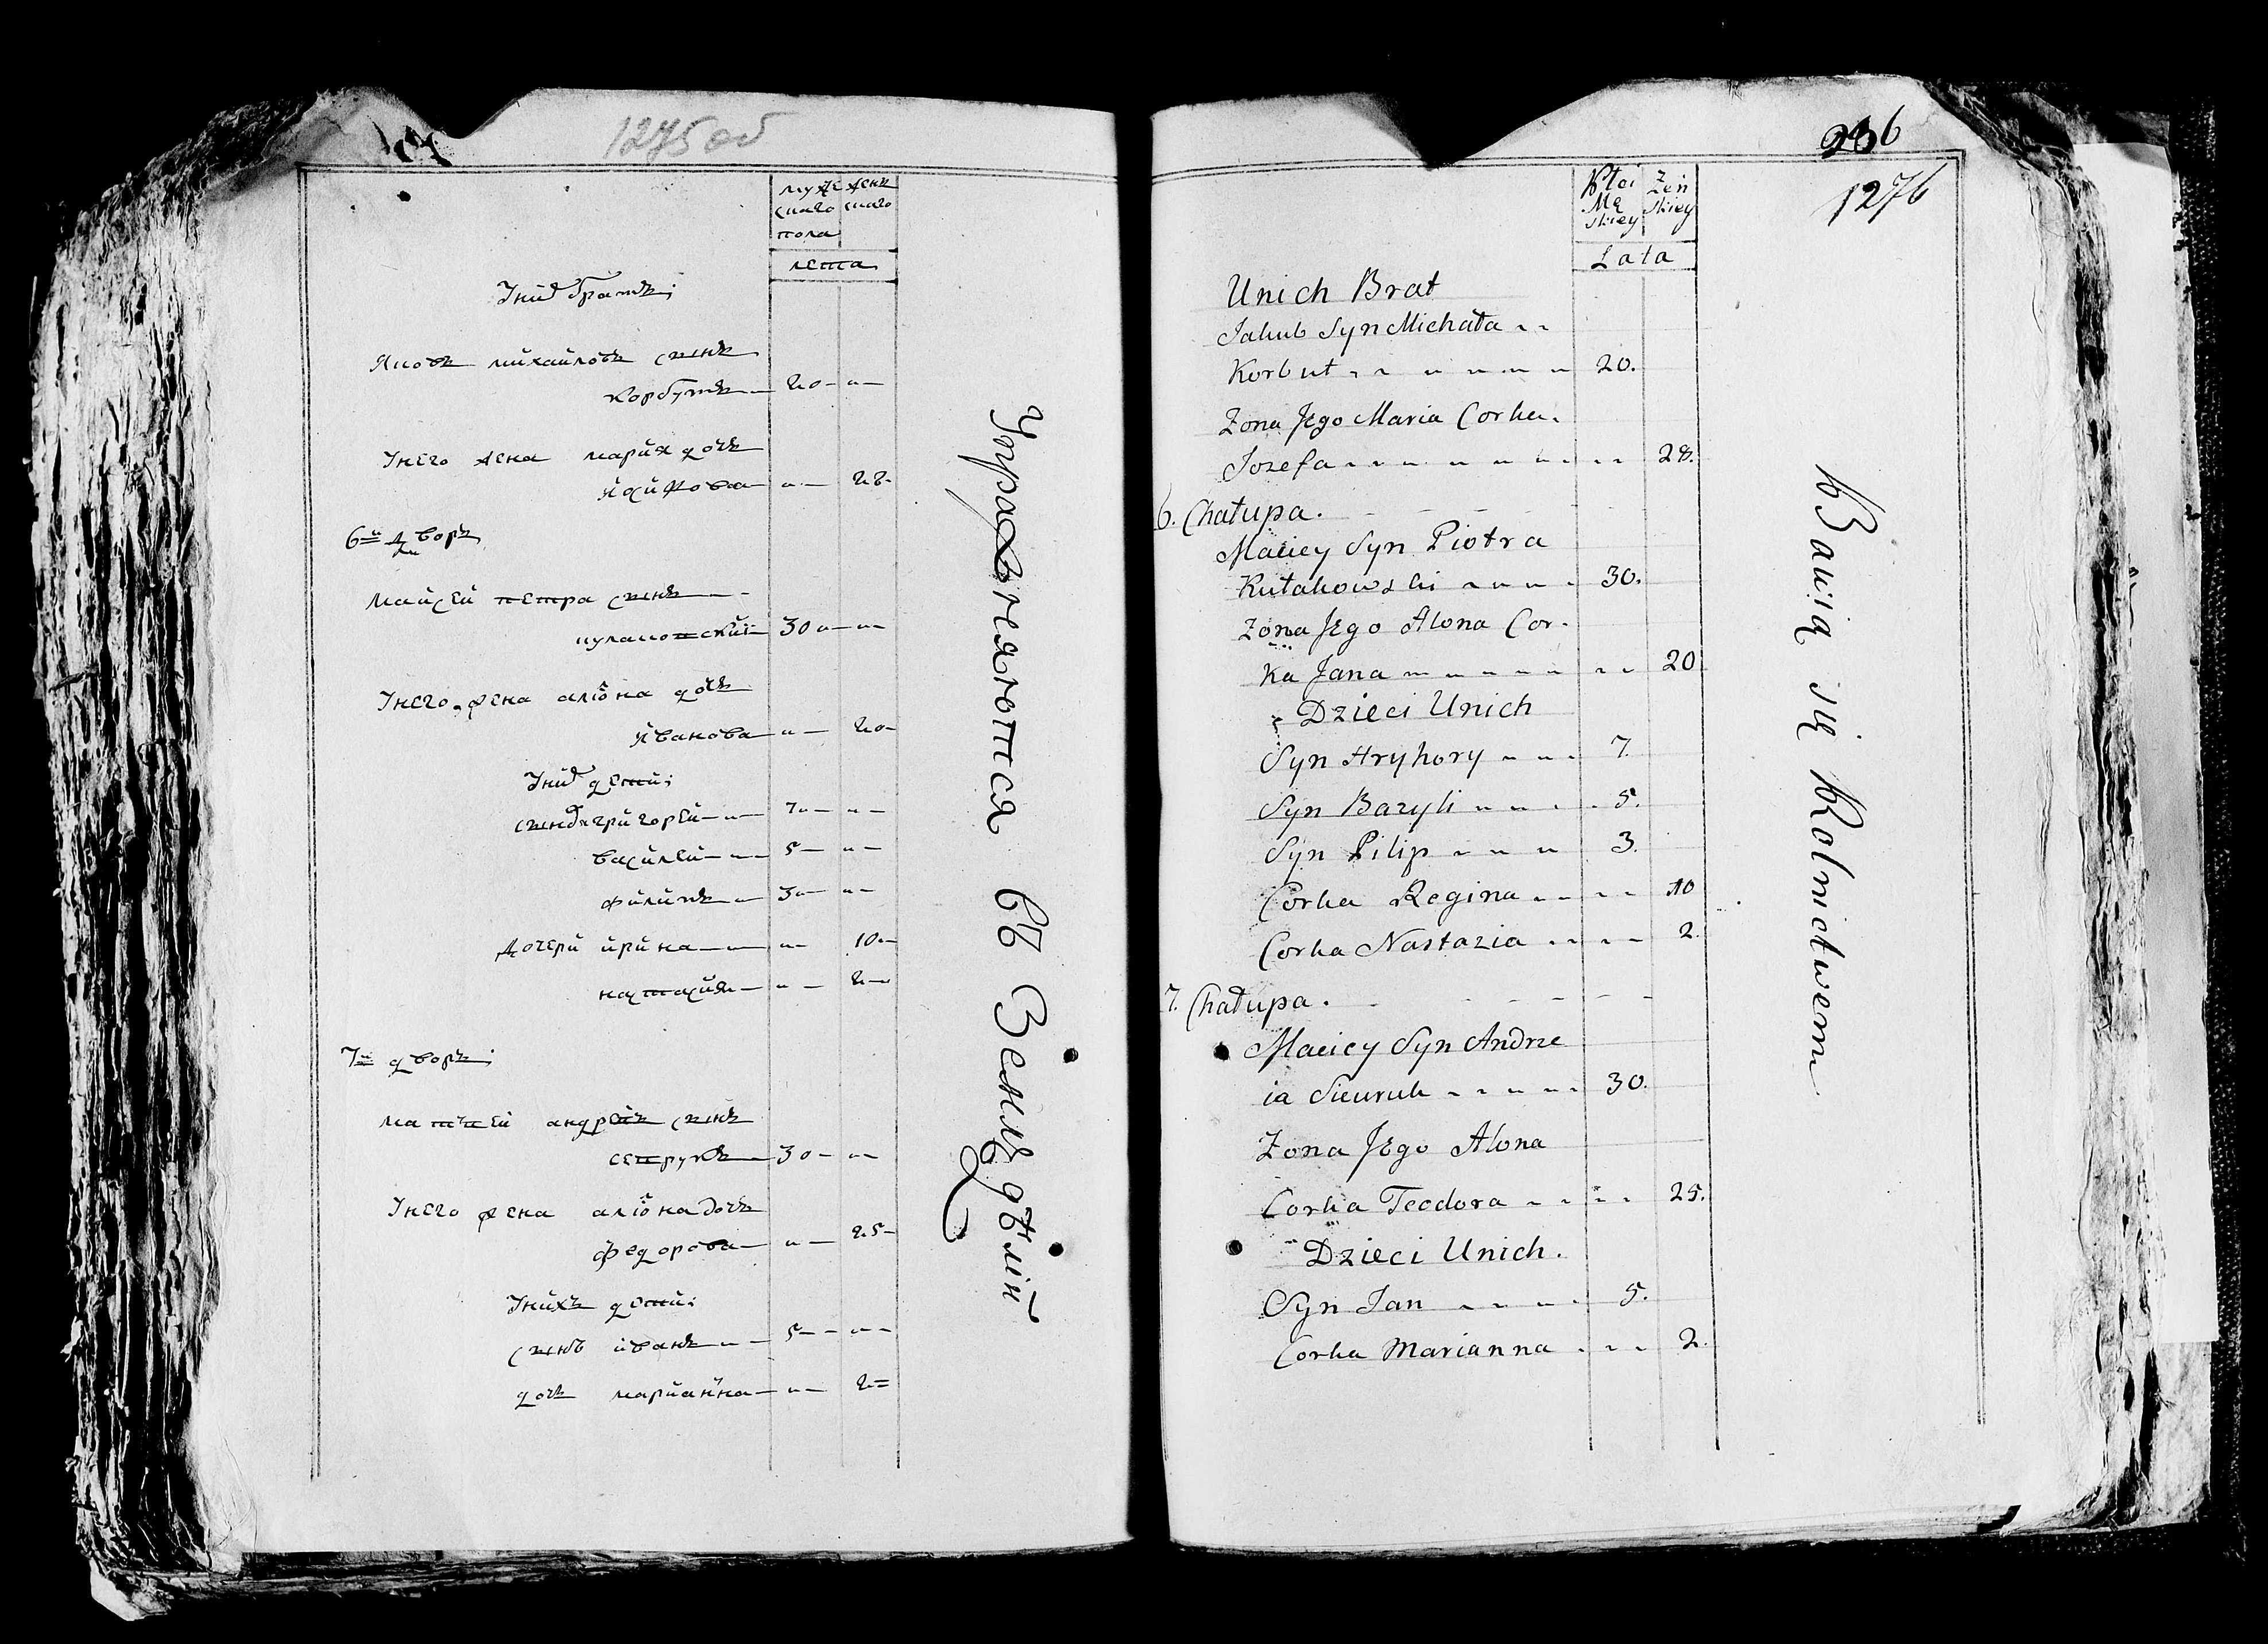 1275 об
муже женс
скаго скаго
пола
лета
У них братъ;
Яковъ михайловъ сынъ
корбутъ 20
У него жена мария дочь
йосифова 28
6й дворъ
Мацей петра сынъ
кулаковский 30
У него жена алiона дочь
Иванова 20
У них дети:
сыновья григорей 7
василей 5
филипъ 3
дочери ирина 10
настасия 2
7й дворъ;
матвей андреевъ сынъ
севрукъ 30
У него жена алiона дочь
федорова 25
У нихъ дети:
сынъ иванъ 5
дочь марианна 2
Упражняются въ Земледѣлiи
236
1276
Płci Zeń
Mę skiey
skiey
Lata
Unich Brat
Jakub Syn Michała
Korbut 20.
Zona Jego Maria Corka
Jozefa 28.
6. Chałupa.
Maciey Syn Piotra
Kułakowski 30.
Zona Jego Alona Cor-
ka Jana 20
Dzieci Unich
Syn Hryhory 7
Syn Bazyli 5.
Syn Pilip 3.
Corka Regina 10
Corka Nastazia 2.
7. Chałupa.
Maciey Syn Andrze
ia Siewruk 30.
Zona Jego Alona
Corka Teodora 25.
Dzieci Unich.
Syn Jan 5.
Corka Marianna 2.
Bawią się Rolnictwem